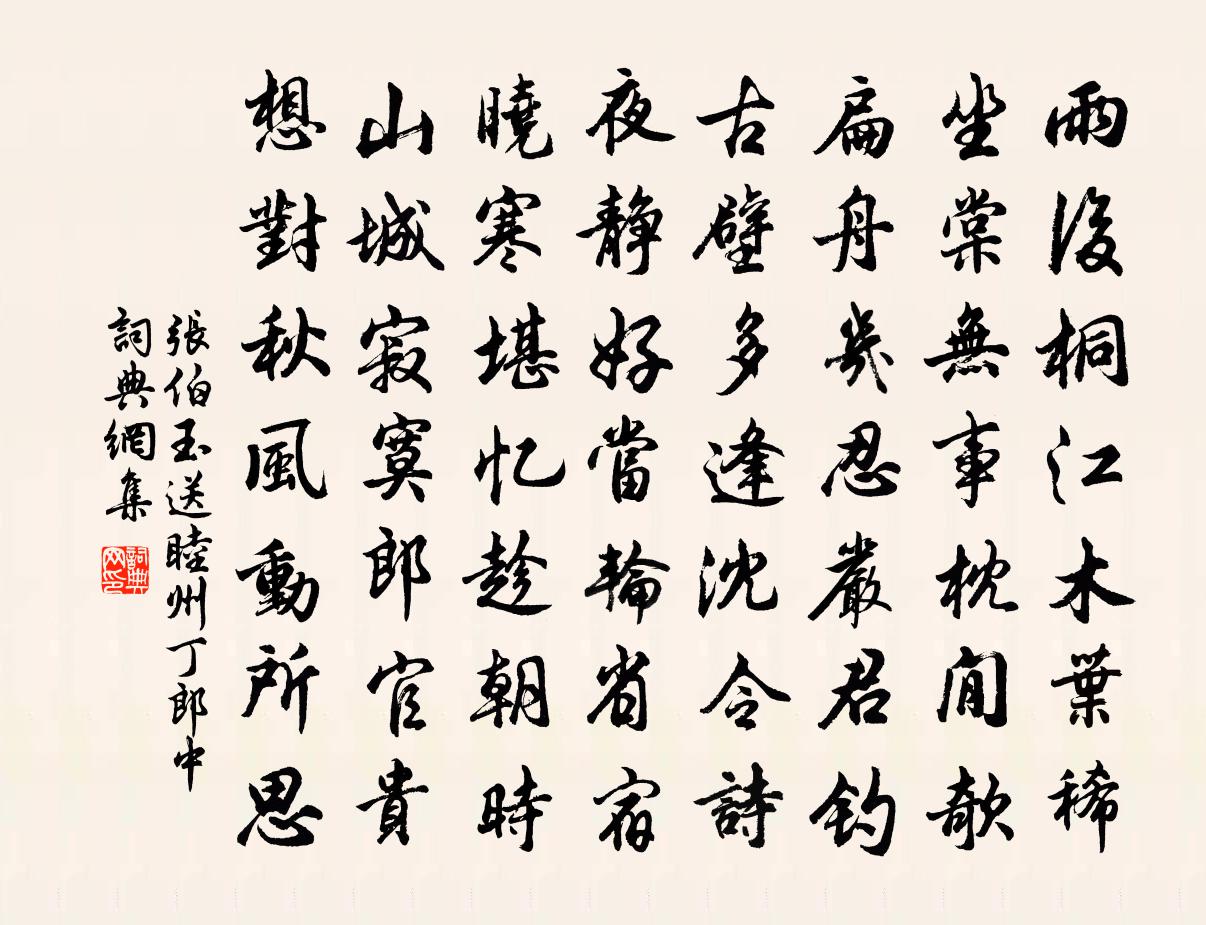 雨後桐江木葉稀
坐棠無事枕閒欹
扁舟幾忍嚴君釣
古壁多逢沈令詩
夜靜好當輪省宿
曉寒堪忆趁朝時
山城寂寞郎官貴
想對秋風動所思
張伯玉送睦州丁郎中
詞典網集
詞典网印